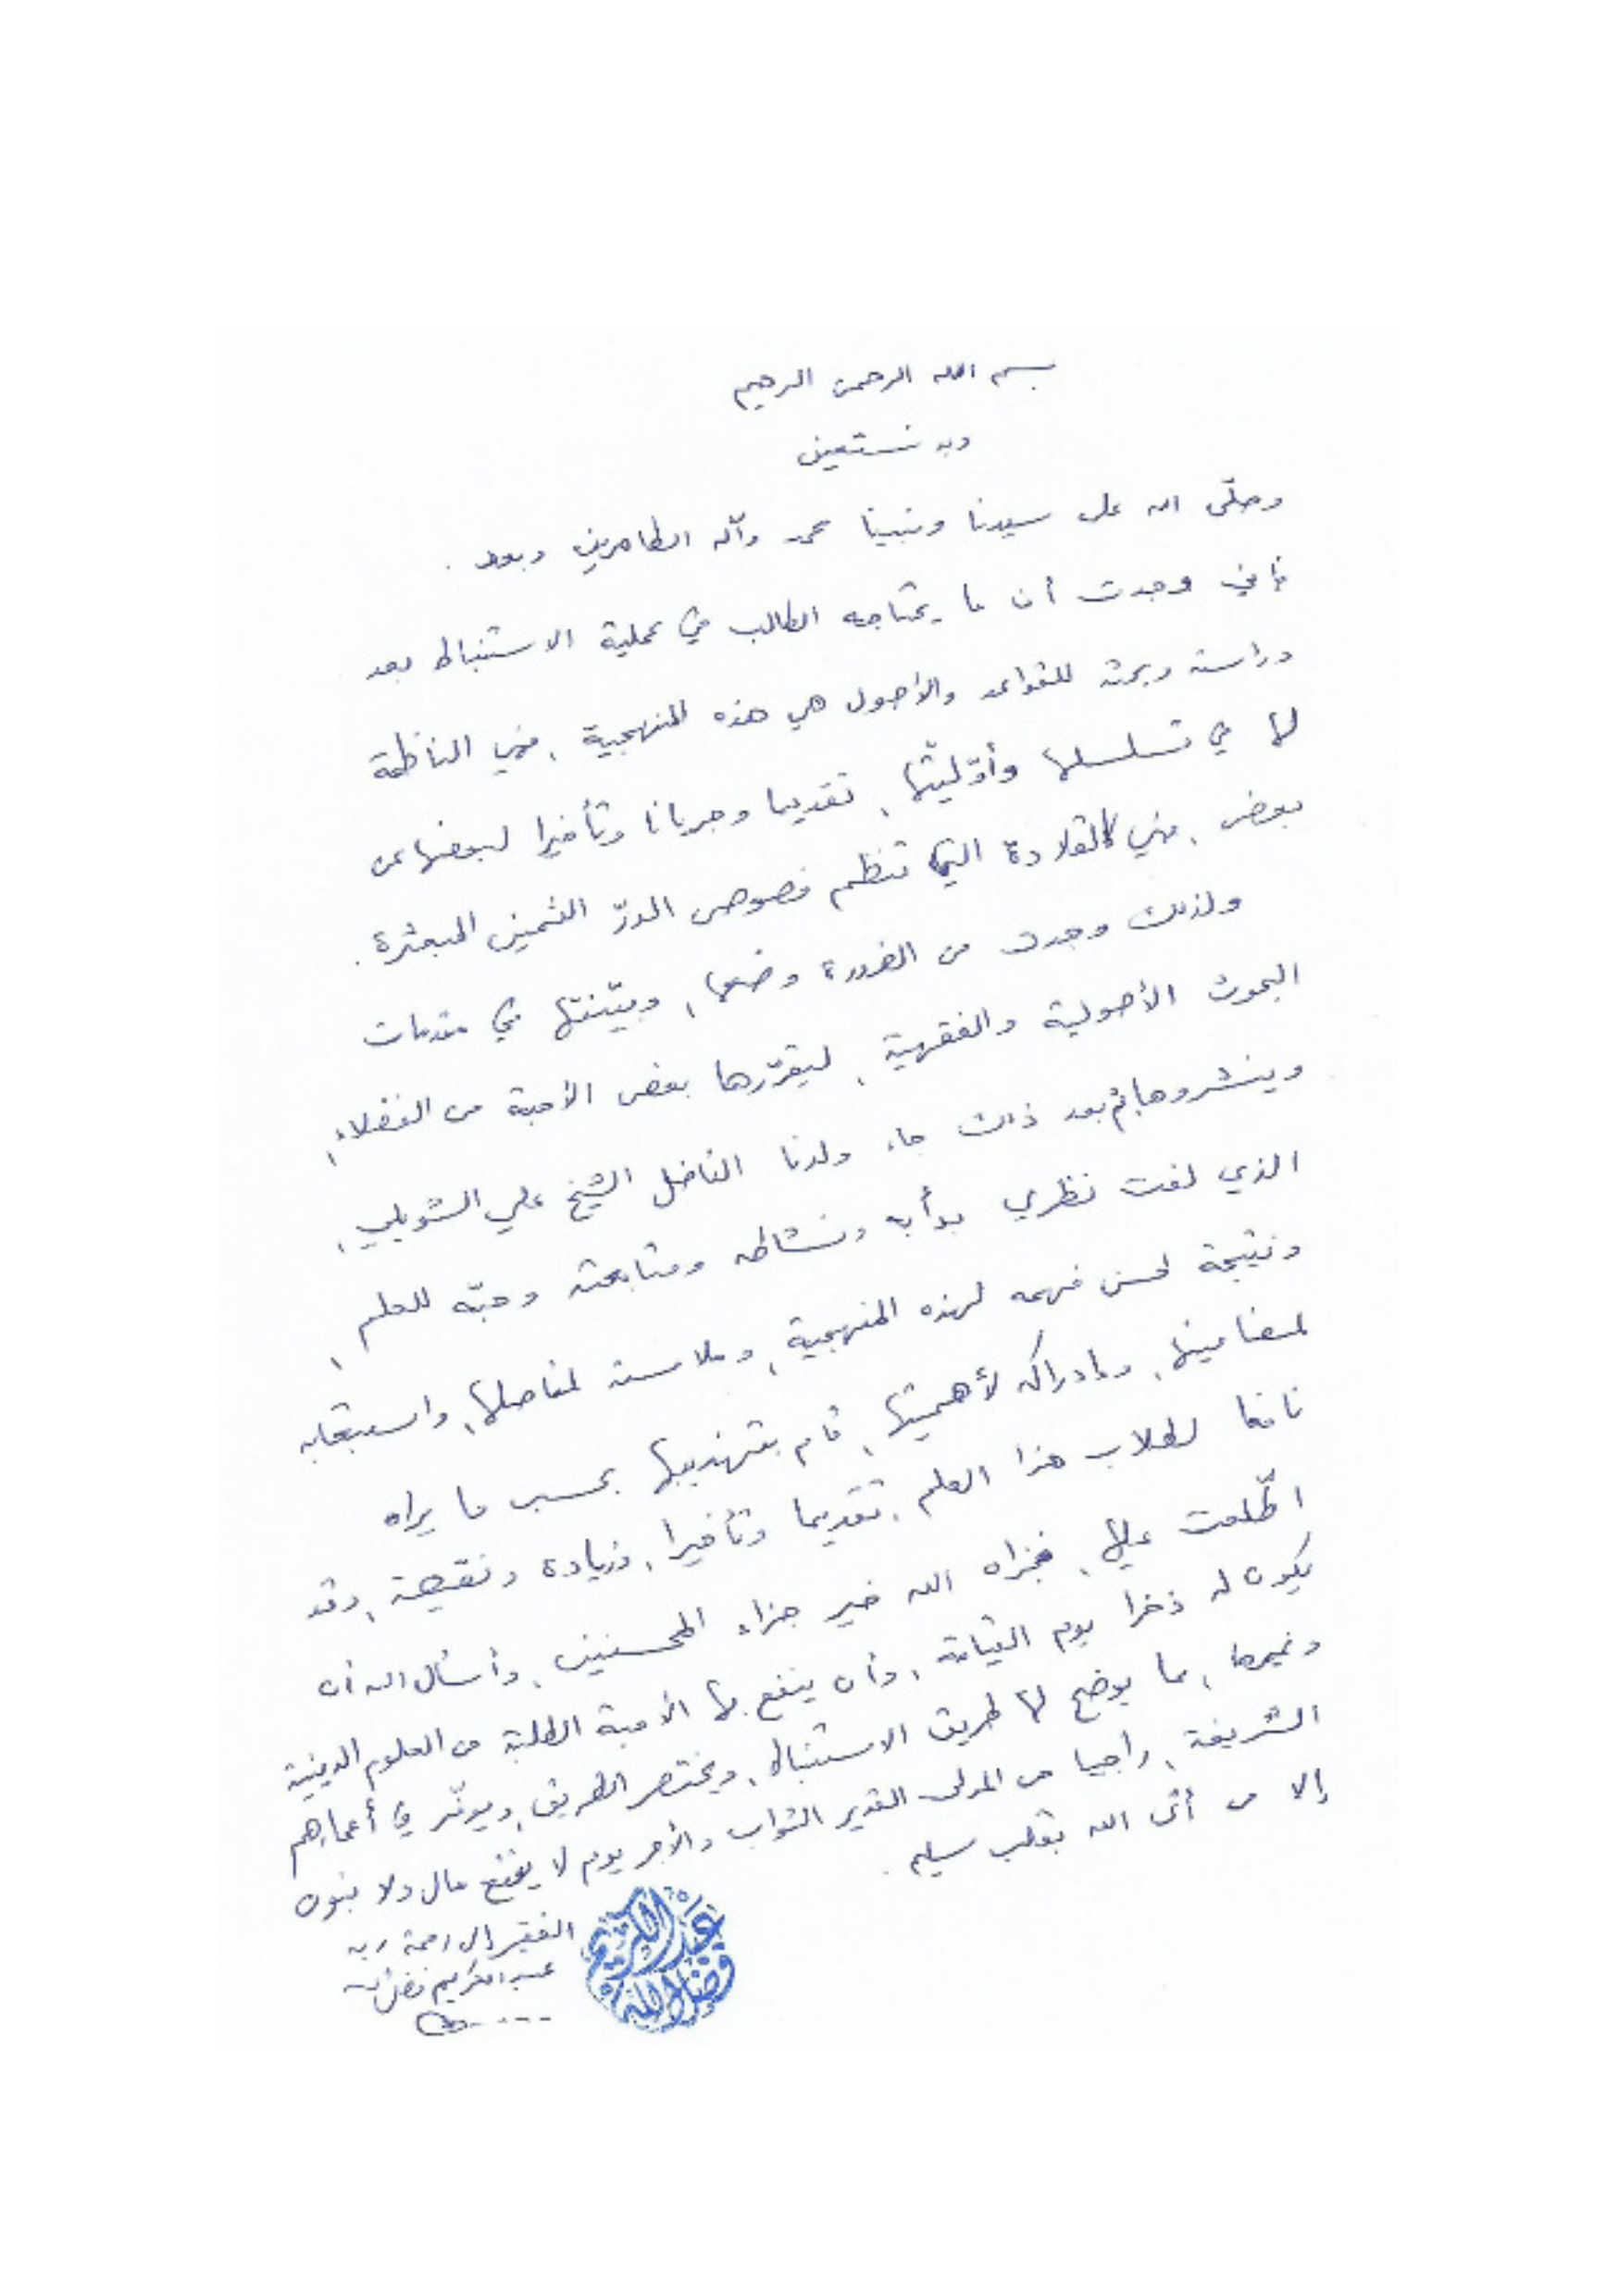 بسم الله الرحمن الرحيم
وبه نستعين
وصلّى الله على سيدنا ونبينا محمد وآله الطاهرين وبعد .
فإني وجدت أن ما يحتاجه الطالب في عملية الاستنباط بعد
دراسته وبحثه للقواعد والأصول هي هذه المنهجية ، فهي الناظمة
لها في تسلسلها وأوّليتها ، تقديما وجريانا وتأخيرا لبعضها عن
بعض ، فهي كالقلادة التي تنظم فصوص الدرّ الثمين المبعثرة .
ولذلك وجدت من الضرورة وضعها ، وبيّنتها في مقدمات
البحوث الأصولية والفقهية ، ليقرّرها بعض الأحبة من الفضلاء ،
وينشروها ثم بعد ذلك جاء ولدنا الفاضل الشيخ علي الشويلي ،
الذي لفت نظري بدأبه ونشاطه ومتابعته وحبّه للعلم ،
ونتيجة لحسن فهمه لهذه المنهجية ، وملامسته لمفاصلها ، واستيعابه
لمضامينها ، وإدراكه لأهميتها ، قام بتهذيبها بحسب ما يراه
نافعا لطلاب هذا العلم ، تقديما وتأخيرا ، وزيادة ونقيصة ، وقد
اطّلعت عليها ، فجزاه الله خير جزاء المحسنين ، وأسأل الله أن
يكون له ذخرا يوم القيامة ، وأن ينفع بها الأحبة الطلبة من العلوم الدينية
وغيرها ، بما يوضح لها طريق الاستنباط ، ويختصر الطريق ، ويوفّر في أعمارهم
الشريفة ، راجيا من المولى القدير الثواب والأجر يوم لا ينفع مال ولا بنون
إلا من أتى الله بقلب سليم .
الفقير إلى رحمة ربه
عبد الكريم فضل الله
عبد الكريم
فضل الله